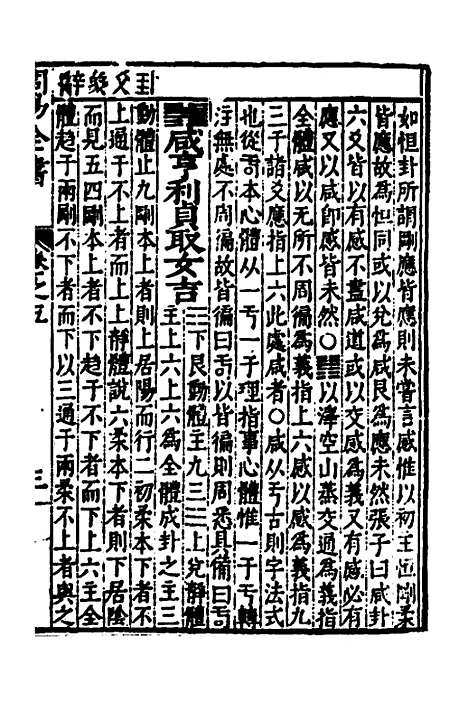 如恒卦所謂剛應皆應則未嘗言感惟以初王恒剛柔
皆應故為恒同或以兌為咸艮為應未然張子曰咸卦
六爻皆以有感不盡咸道或以交感為義又有感必有
應又以咸即感皆未然〇以澤空山蒸交通為義指
全體咸以無所不周徧為義指上六感以感為義指九
三于諸爻應指上六此處咸者〇咸从丂古則字法式
也從丂本心體从一丂一于理指事心體惟一于丂轉
浮無處不周徧故皆徧曰以皆徧則周悉具備曰
咸亨利貞取女吉
三下艮動體主九三三上兌靜體
主上六上六為全體成卦之主三
動體止九剛本上者則上居陽而行二初柔本下者不
上過于不上者而上上靜體說六柔本下者則下居陰
而見五四剛本上者不下趍于不下者而下上六主全
體趍于兩剛不下者而下以三過于兩柔不上者與之
卦爻彖辭
周易全書
卷之五
三